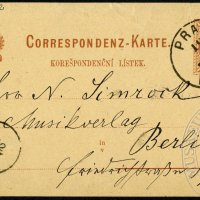 CORRESPONDENZ-KARTE.
KOREŠPONDENČNÍ LÍSTEK.
PRA
N. Simrock
Musikverlag
in
Berli
Friedrichstraße